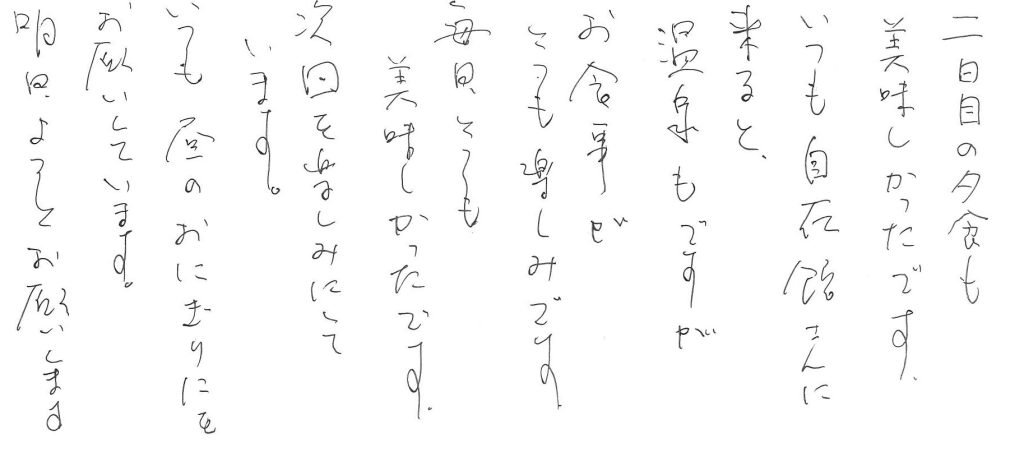 二日目の夕食も
美味しかったです。
いつも自在館さんに
来ると、
温泉もですが
お食事が
とても楽しみです。
毎日とても
美味しかったです。
次回を楽しみにして
います。
いつも昼のおにぎりにを
お願いしています。
明日よろしくお願いします